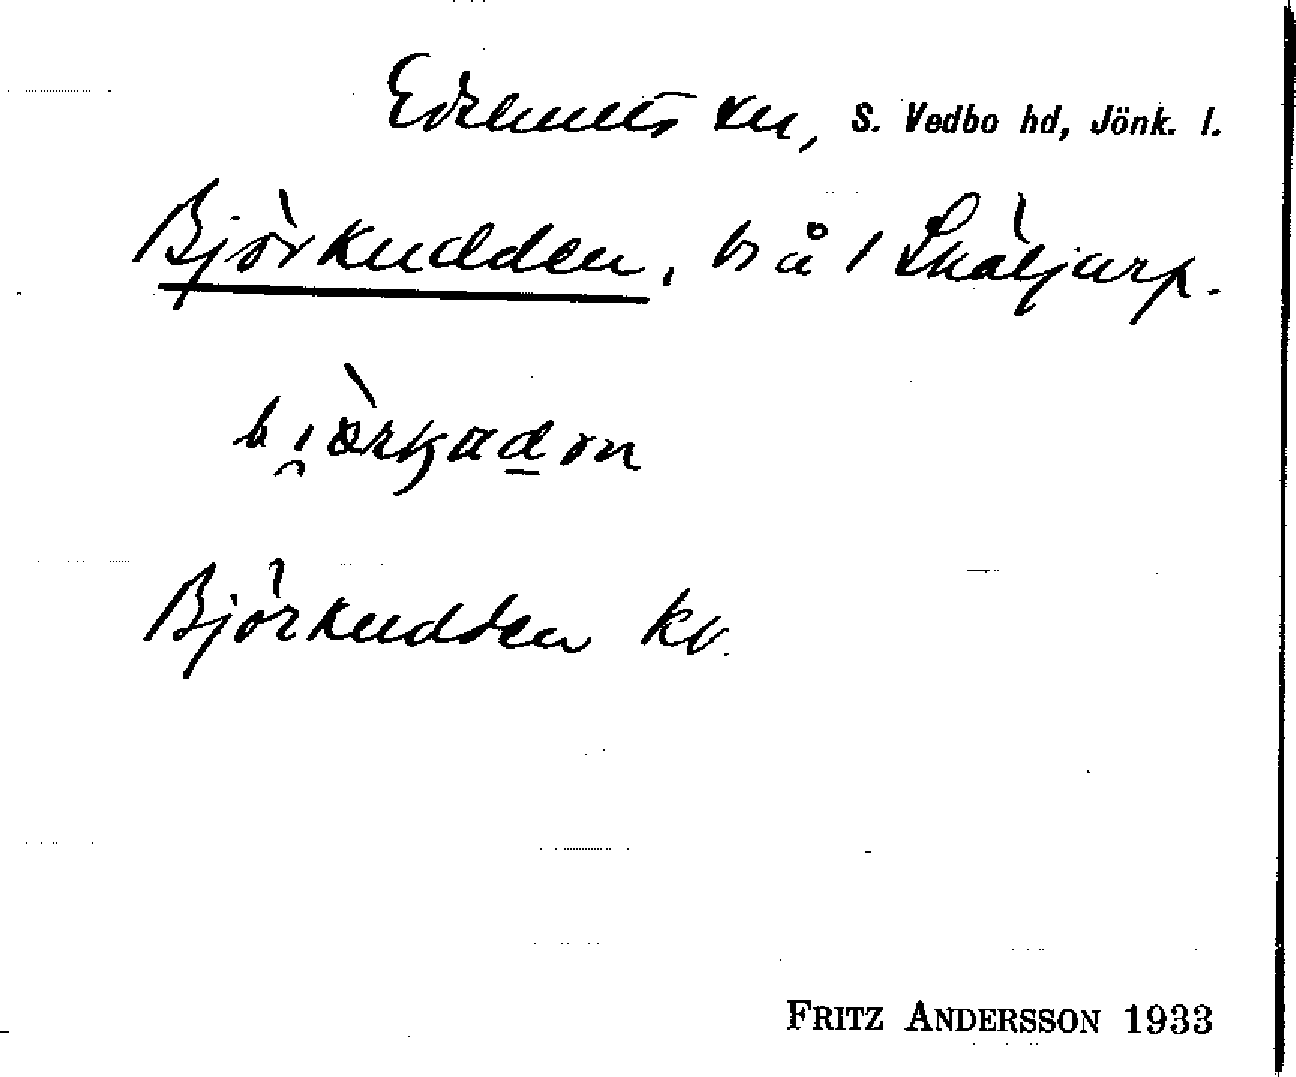 Edshults sn, S. Vedbo hd, Jönk. l.
Björkudden, bs å 1 Skäljarp.
Björkudden kv.
FRITZ ANDERSSON 1933